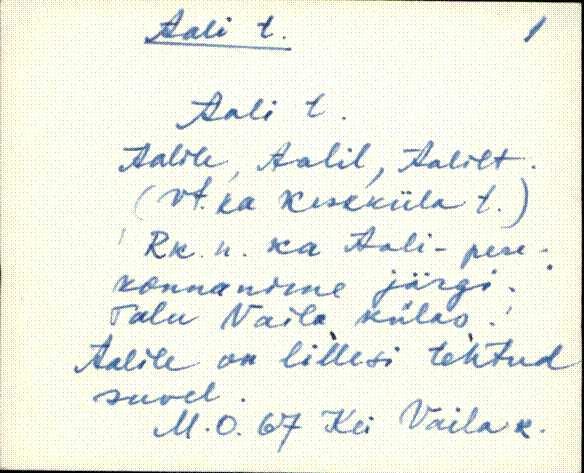 Aali t. 1
Aali t.
Aalile, Aalil, Aalilt.
(vt. ka Kesküla t.)
Rk. n. ka Aali - pere-
konnanime järgi.
Talu Vaila külas.
Aalile on lillesi tehtud
suvel.
M.O. 67 Kei Vaila k.